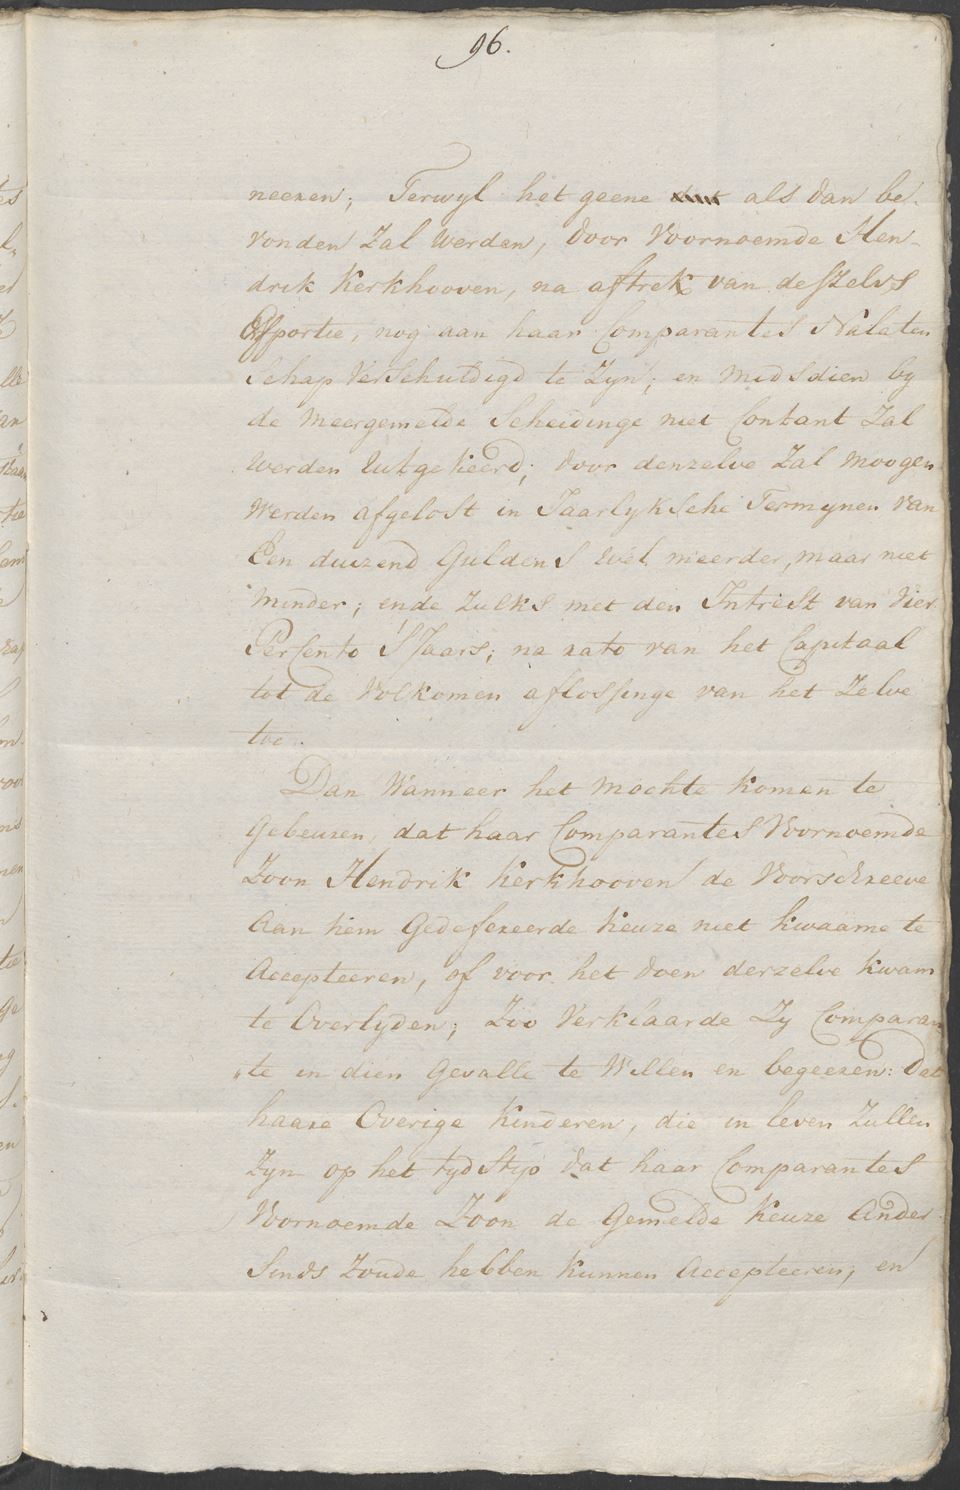 96.
neeren; Terwyl het geene als dan be-
vonden Zal werden, door Voornoemde Hen-
drik Kerkhooven, na aftrek van deszelvs
portie, nog aan haar Comparantes Nalaten
schap verschuldigd te Zyn; en midsdien by
de meergemelde Scheidinge niet Contant Zal
werden Uutgekeerd; door denzelve Zal moogen
Werden afgelost in Jaarlyksche Termynen van
Een duizend Guldens wel meerder, maar niet
minder; ende Zulks met den Intrest van Vier
PerCento 'SJaars; na rato van het Capitaal
tot de Volkomen aflossinge van het Zelve
toe.
Dan Wanneer het mochte komen te
Gebeuren, dat haar Comparantes Voornoemde
Zoon Hendrik Kerkhooven de Voorschreeve
Aan hem Gedefereerde Keuze niet kwaame te
Accepteeren, of voor het doen derzelve kwam
te Overlyden; Zoo Verklaarde Zy Comparan
„te in dien Gevalle te Willen en begeeren: Dat
haare Overige Kinderen, die in leven Zullen
Zyn op het tydstip dat haar Comparantes
Voornoemde Zoon de Gemelde Keuze Ander
Sinds Zoude hebben kunnen Accepteeren, en